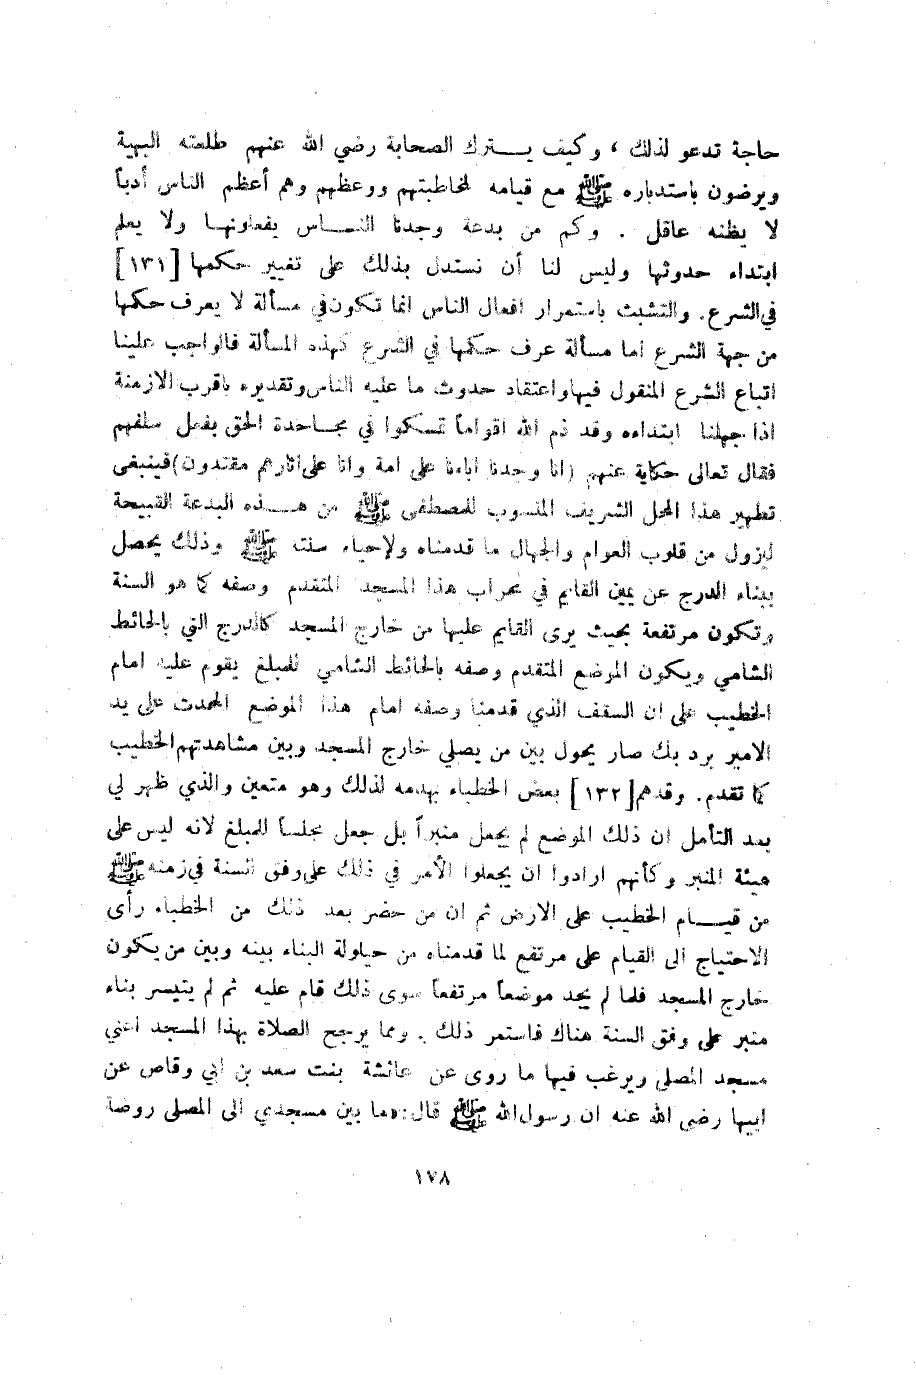 حاجة تدعو لذلك ، وكيف يـــترك الصحابة رضي الله عنهم طلعته البهية
ويرضون باستدباره ﷺ مع قيامه لمخاطبتهم ووعظهم وهم أعظم الناس أدباً
لا يظنه عاقل . وكم من بدعة وجدنا النــاس يفعلونهــا ولا يعلم
ابتداء حدوثها وليس لنا أن نستدل بذلك على تغيير حكمها [١٣١]
في الشرع. والتشبث باستمرار افعال الناس انما تكون في مسألة لا يعرف حكمها
من جهة الشرع اما مسألة عرف حكمها في الشرع كهذه المسألة فالواجب علينا
اتباع الشرع المنقول فيها واعتقاد حدوث ما عليه الناس وتقديره باقرب الازمنة
اذا جهلنا ابتداءه وقد ذم الله اقواماً تمسكوا في مجاحدة الحق بفعل سلفهم
فقال تعالى حكاية عنهم (انا وجدنا اباءنا على امة وانا على اثارهم مقتدون) فينبغى
تطهير هذا المحل الشريف المنسوب للمصطفى ﷺ من هــذه البدعة القبيحة
ليزول من قلوب العوام والجهال ما قدمناه ولإحياء سنت ﷺ وذلك يحصل
ببناء الدرج عن يمين القايم في محراب هذا المسجد المتقدم وصفه كما هو السنة
وتكون مرتفعة بحيث يرى القايم عليها من خارج المسجد كالدرج التي بالحائط
الشامي ويكون الموضع المتقدم وصفه بالحائط الشامي للمبلغ يقوم عليه امام
الخطيب على ان السقف الذي قدمنا وصفه امام هذا الموضع المحدث على يد
الامير برد بك صار يحول بين من يصلي خارج المسجد وبين مشاهدتهم الخطيب
كما تقدم. وقدهم [١٣٢] بعض الخطباء بهدمه لذلك وهو متعين والذي ظهر لي
بعد التأمل ان ذلك الموضع لم يجعل منبراً بل جعل مجلساً للمبلغ لانه ليس على
هيئة المنبر وكأنهم ارادوا ان يجعلوا الأمر في ذلك على وفق السنة في زمنه ﷺ
من قيــام الخطيب على الارض ثم ان من حضر بعد ذلك من الخطباء رأى
الاحتياج الى القيام على مرتفع لما قدمناه من حيلولة البناء بينه وبين من يكون
خارج المسجد فلما لم يجد موضعاً مرتفعاً سوى ذلك قام عليه ثم لم يتيسر بناء
منبر على وفق السنة هناك فاستمر ذلك . ومما يرجح الصلاة بهذا المسجد اعني
مسجد المصلى ويرغب فيها ما روى عن عائشة بنت سعد بن ابي وقاص عن
ابيها رضي الله عنه ان رسول الله ﷺ قال: «ما بين مسجدي الى المصلى روضة
١٧٨